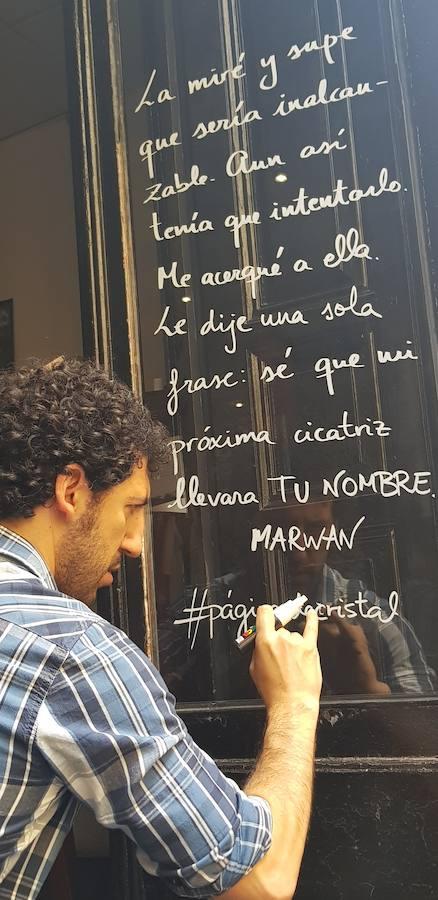 La miré y supe
que sería inalcan-
zable. Aun así
tenía que intentarlo.
Me acerqué a ella.
Le dije una sola
frase: sé que mi
próxima cicatriz
llevara TU NOMBRE.
MARWAN